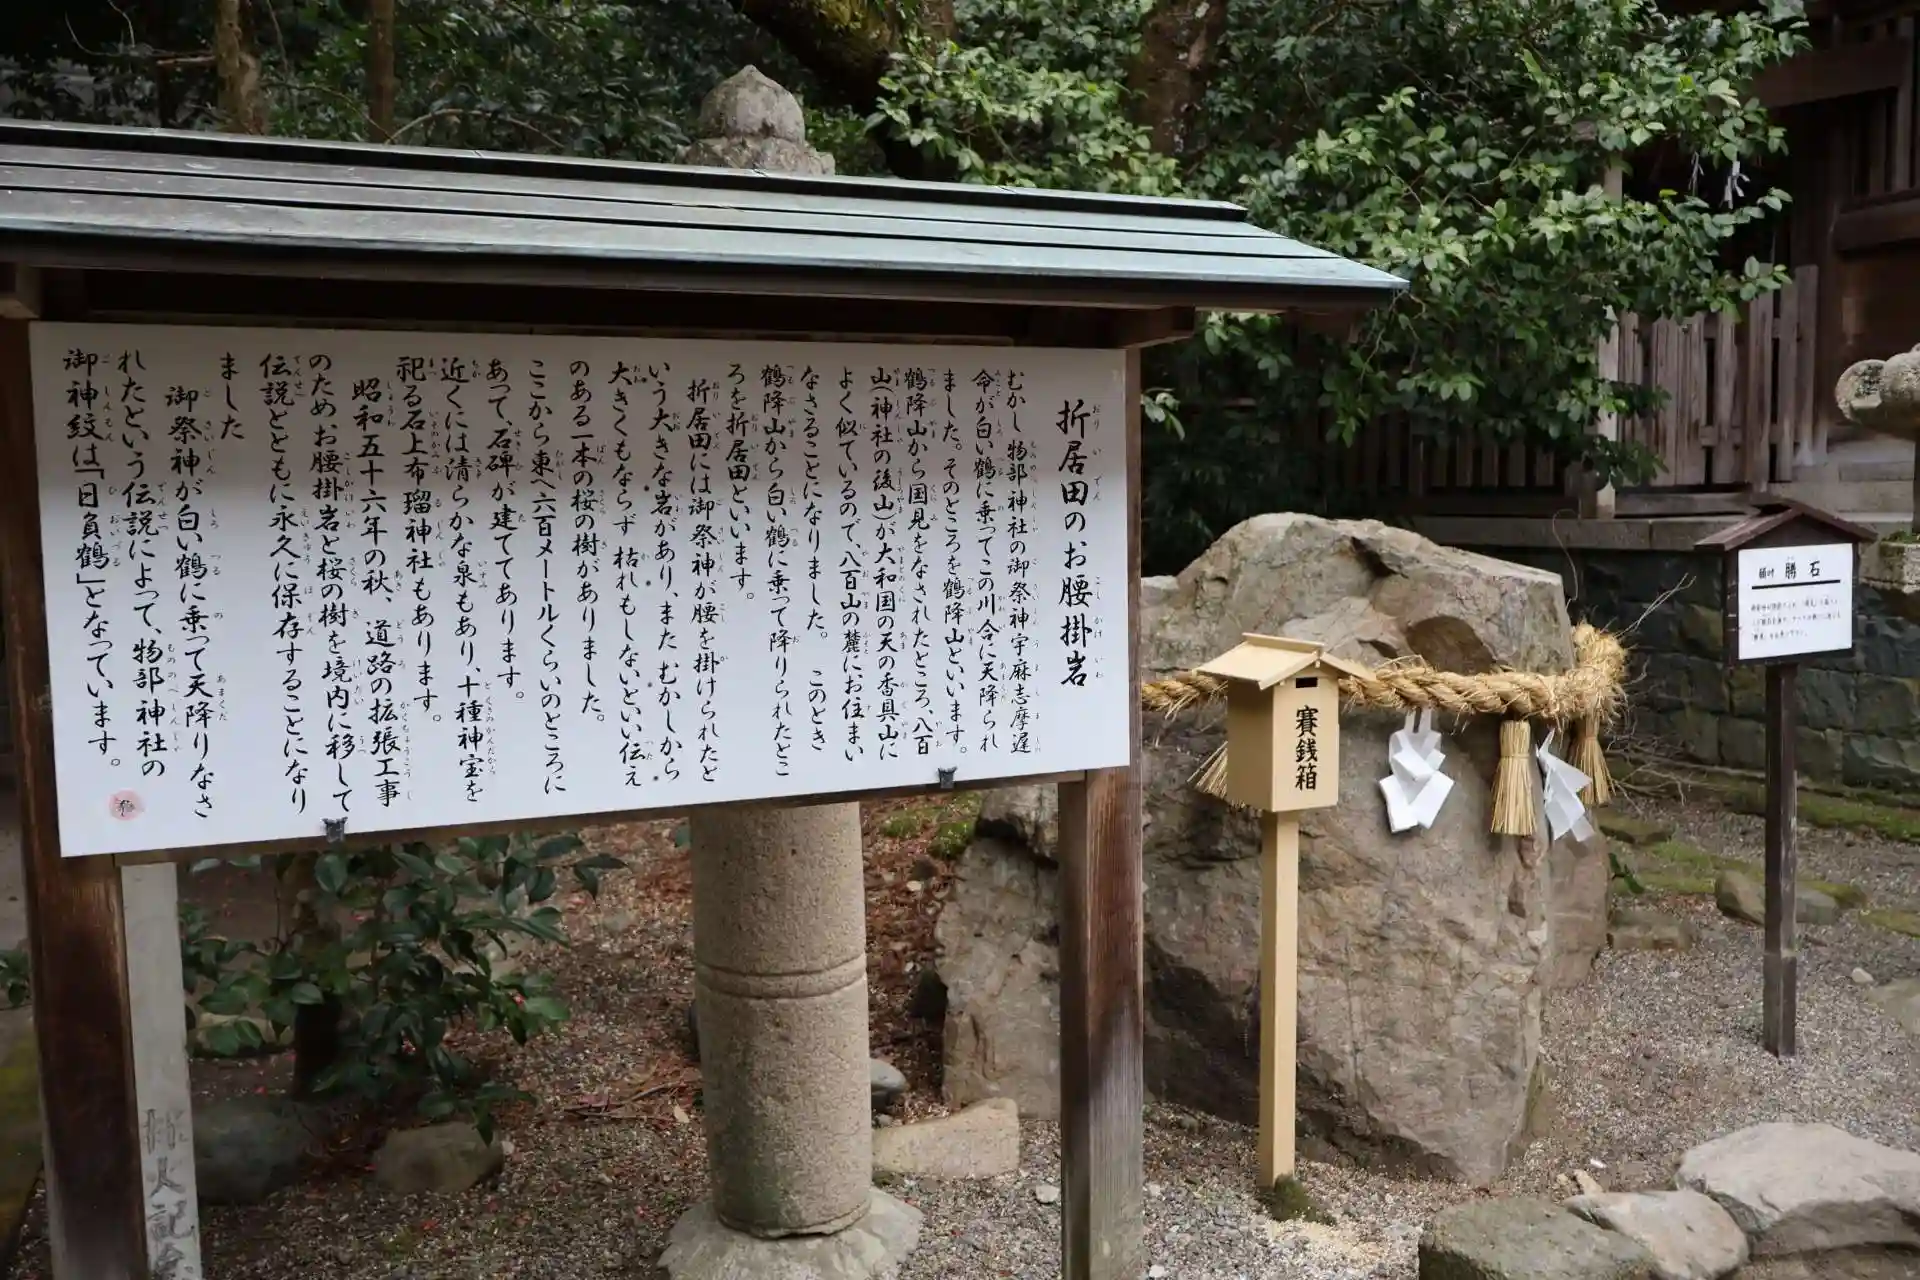 折居田のお腰掛岩
むかし物部神社の御祭神宇麻志摩遅
命が白い鶴に乗ってこの川合に天降られ
ました。そのところを鶴降山といいます。
鶴降山から国見をなされたところ、八百
山(神社の後山)が大和国の天の香具山に
よく似ているので、八百山の麓にお住まい
なさることになりました。 このとき
鶴降山から白い鶴に乗って降りられたとこ
ろを折居田といいます。
折居田には御祭神が腰を掛けられたと
いう大きな岩があり、また むかしから
大きくもならず 枯れもしないといい伝え
のある一本の桜の樹がありました。
ここから東へ六百メートルくらいのところに
あって、石碑が建ててあります。
近くには清らかな泉もあり、十種神宝を
祀る石上布瑠神社もあります。
昭和五十六年の秋、道路の拡張工事
のため、お腰掛岩と桜の樹を境内に移して
伝説とともに永久に保存することになり
ました
御祭神が白い鶴に乗って天降りなさ
れたという伝説によって、物部神社の
御神紋は「日負鶴」となっています。
賽銭箱
願叶 勝石